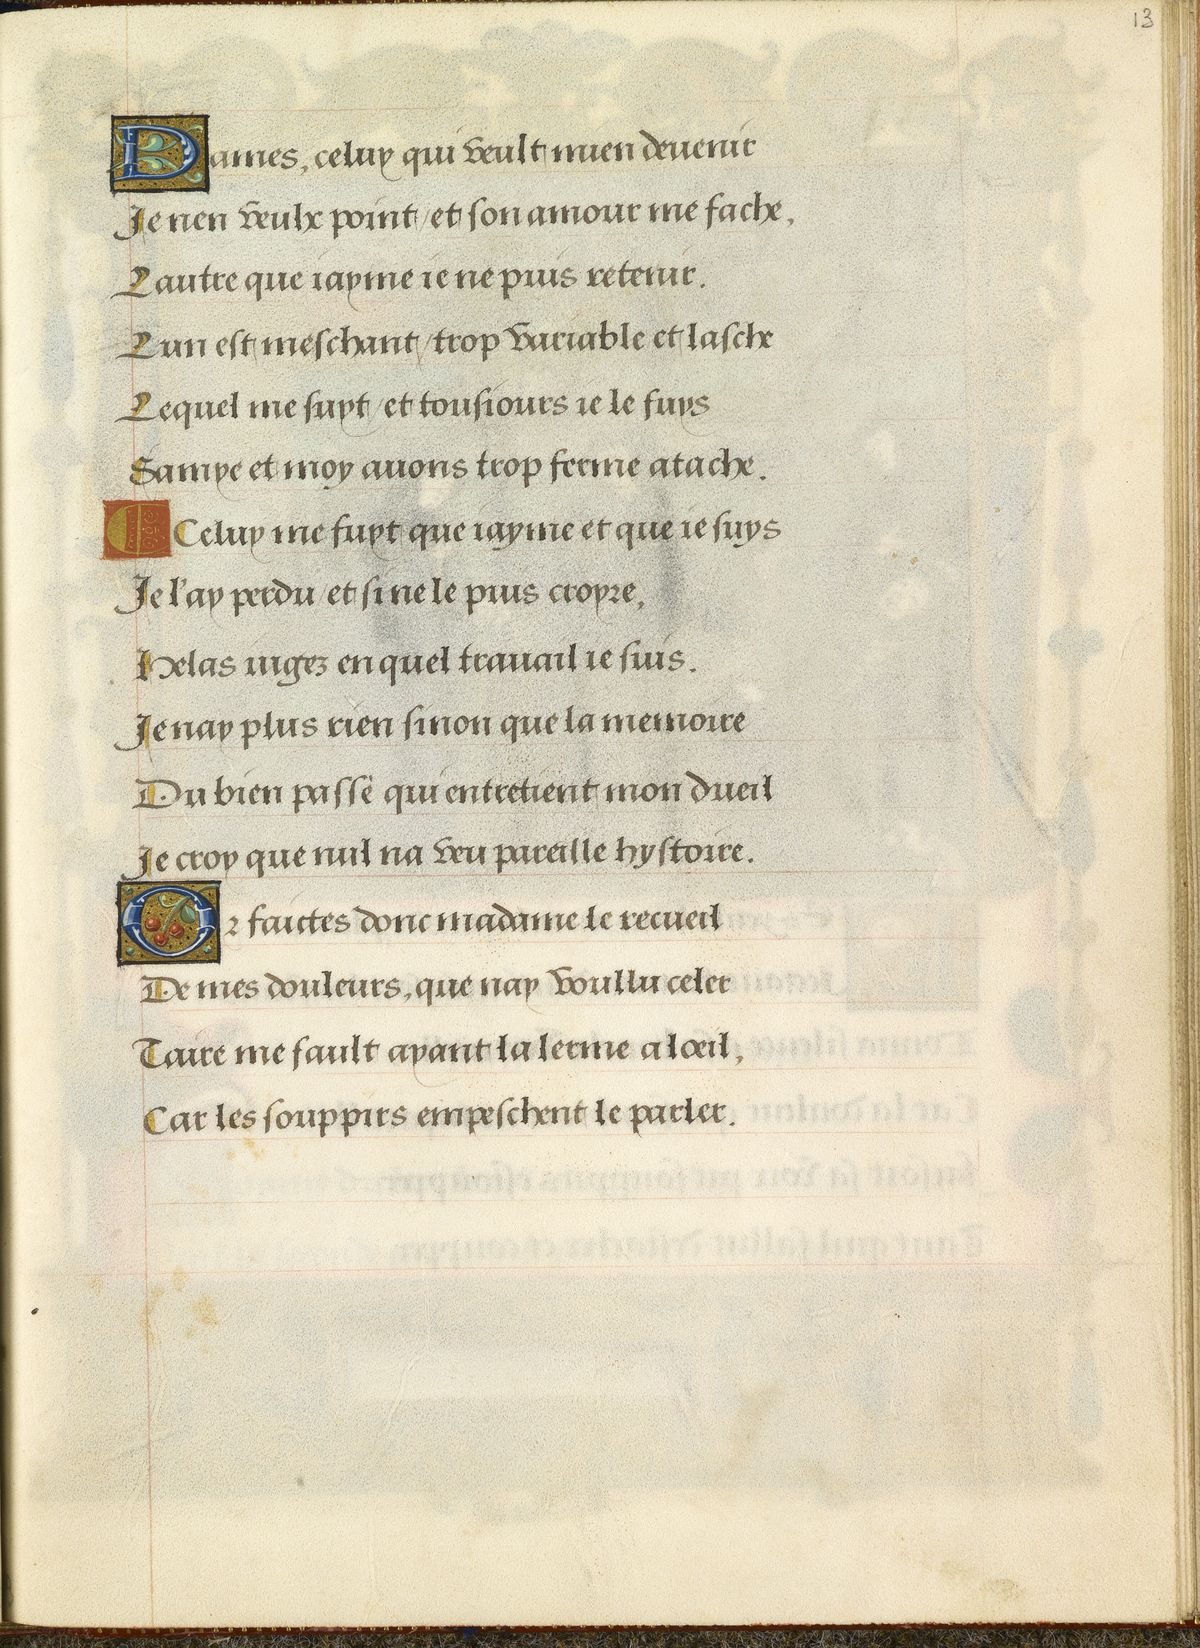 13
Dames, celuy qui veult mien deuenir
Je nen veulx point / et son amour me fache,
Lautre que iayme ie ne puis retenir.
Lun est meschant / trop variable et lasche
Lequel me suyt / et tousiours ie le fuys
Samye et moy auons trop ferme atache.
Celuy me fuyt que iayme et que ie suys
Je l'ay perdu / et si ne le puis croyre,
Helas iugez en quel trauail ie suis.
Je nay plus rien sinon que la memoire
Du bien passé qui entretient mon dueil
Je croy que nul na veu pareille hystoire.
Or faictes donc madame le recueil
De mes douleurs, que nay voullu celer
Taire me fault ayant la lerme a lœil,
Car les souppirs empeschent le parler.